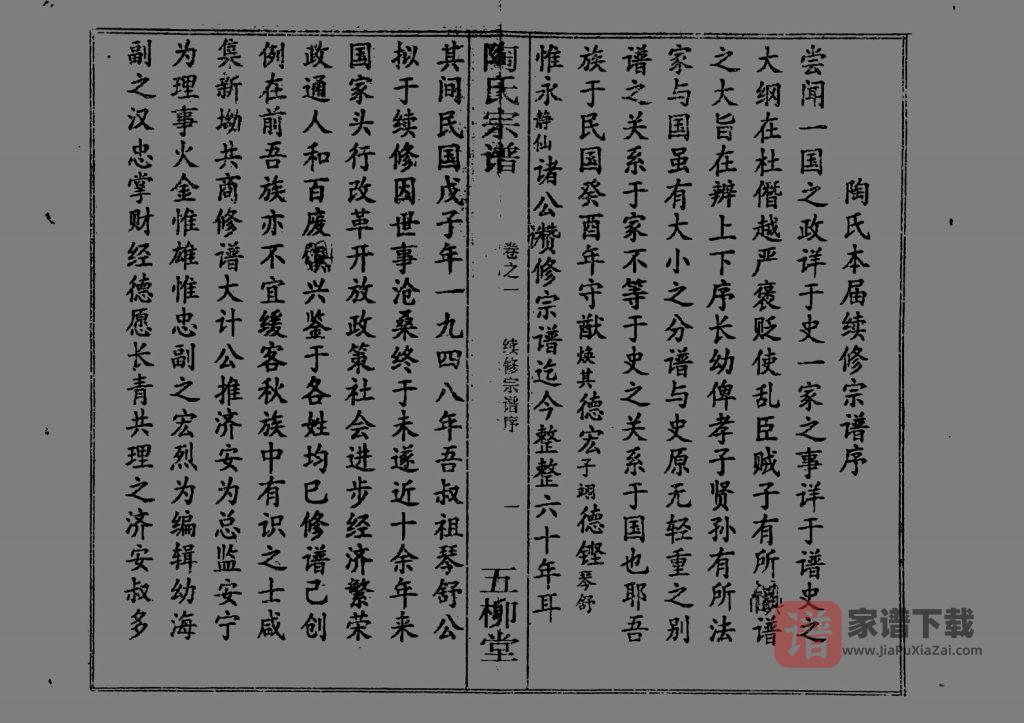 陶氏本届续修宗谱序
尝闻一国之政详于史一家之事详于谱史之
大纲在杜僭越严褒贬使乱臣贼子有所惧谱
之大旨在辨上下序长幼俾孝子贤孙有所法
家与国虽有大小之分谱与史原无轻重之别
谱之关系于家不等于史之关系于国也耶吾
族于民国癸酉年守猷焕其德宏子翊德铿琴舒
惟永静仙诸公讚修宗谱迄今整整六十年耳
陶氏宗谱
卷之一
续修宗谱序
一
五柳堂
其间民国戊子年一九四八年吾叔祖琴舒公
拟于续修因世事沧桑终于未遂近十余年来
国家头行改革开放政策社会进步经济繁荣
政通人和百废俱兴鉴于各姓均已修谱己创
例在前吾族亦不宜缓客秋族中有识之士咸
集新坳共商修谱大计公推济安为总监安宁
为理事火金惟雄惟忠副之宏烈为编辑幼海
副之汉忠掌财经德愿长青共理之济安叔多
谱
家谱下载
www.JiaPuXiaZai.com